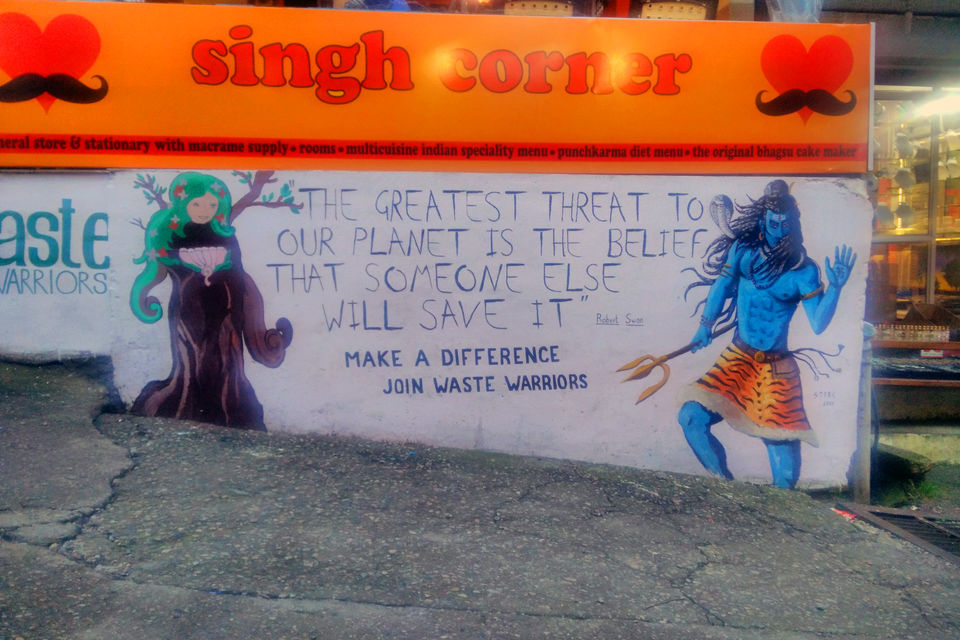 singh corner
neral store & stationary with macrame supply • rooms • multicuisine indian speciality menu • punchkarma diet menu • the original bhagsu cake maker
aste
WARRIORS
THE GREATEST THREAT TO
OUR PLANET IS THE BELIEF
THAT SOMEONE ELSE
WILL SAVE IT"
Robert Swan
MAKE A DIFFERENCE
JOIN WASTE WARRIORS